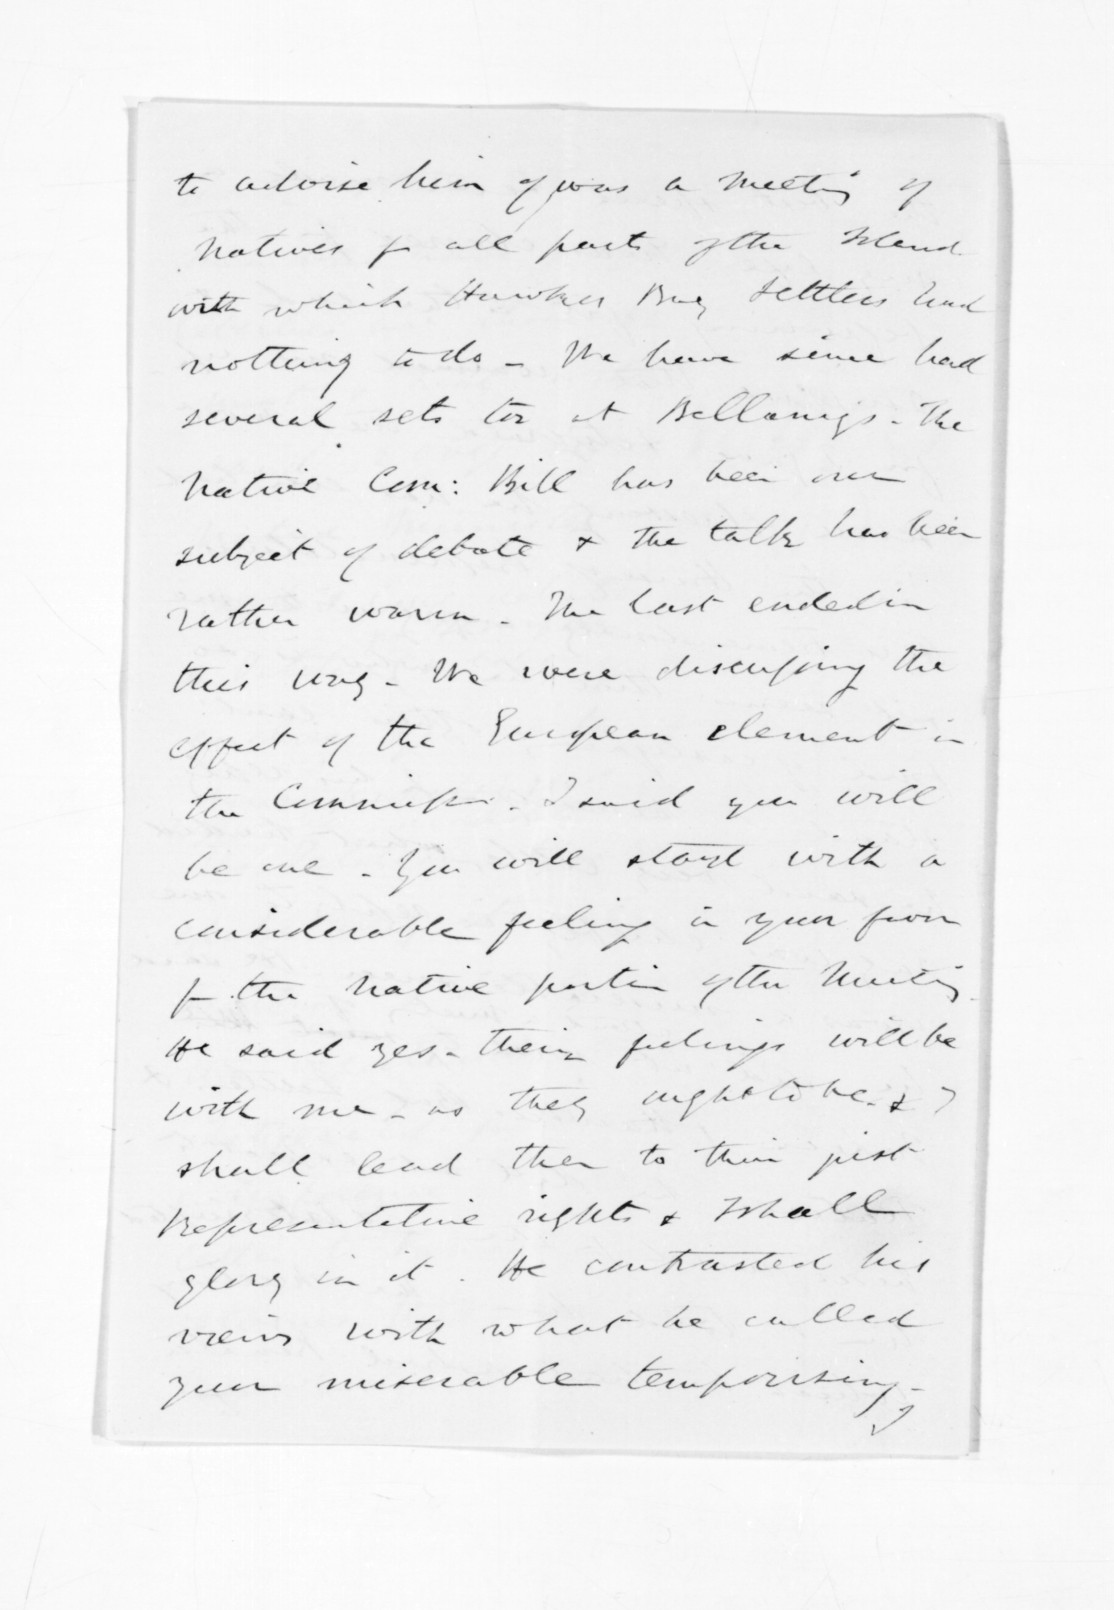 to advise him of was a Meeting of
Natives fr all parts of the Island
with which Hawkes Bay Settlers had
nothing to do - We have since had
several sets too at Bellamys - The
Native Com: Bill has been our
subject of debate & the talk has been
rather warm - The last ended in
this way - We were discussing the
effect of the European element in
the Commission. I said you will
be one - You will stand with a
considerable feeling in your favor
fr the Native portion of the Meeting
He said yes - their feelings will be
with me - as they ought to be - & I
shall lead them to their just
Representative rights & I shall
glory in it. He contrasted his
views with what he called
your miserable temporising -
I